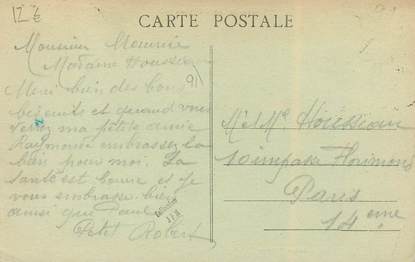 12€
CARTE POSTALE
Monsieur Maurice
Madame Housseau
Merci bien des bons
biscuits et quand vous
verrez ma petite amie
Raymonde embrassez la
bien pour moi. La
santé est bonne et je
vous embrasse bien
ainsi que Paul
Petit Robert
91
M et Me Housseau
10 impasse Florimont
Paris
14 eme